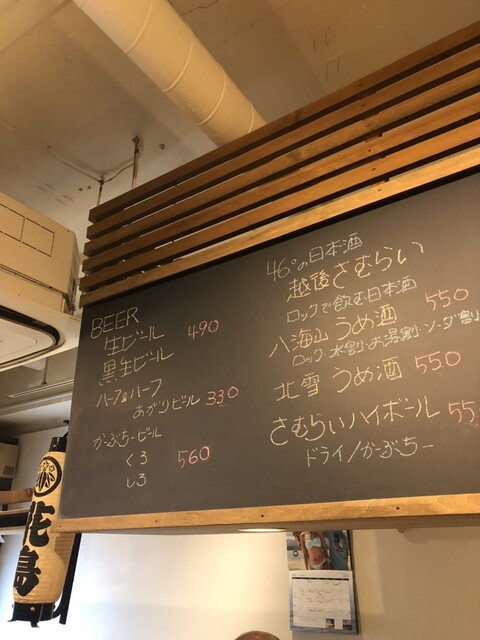 BEER
生ビール 490
黒生ビール
ハーフ&ハーフ
あがりビール 330
かーぶちービール
くろ 560
しろ
46°の日本酒
越後さむらい
ロックで飲む日本酒
八海山 うめ酒 550
ロック・水割・お湯割・ソーダ割
北雪 うめ酒 550
さむらいハイボール 55
ドライ/かーぶちー
花島